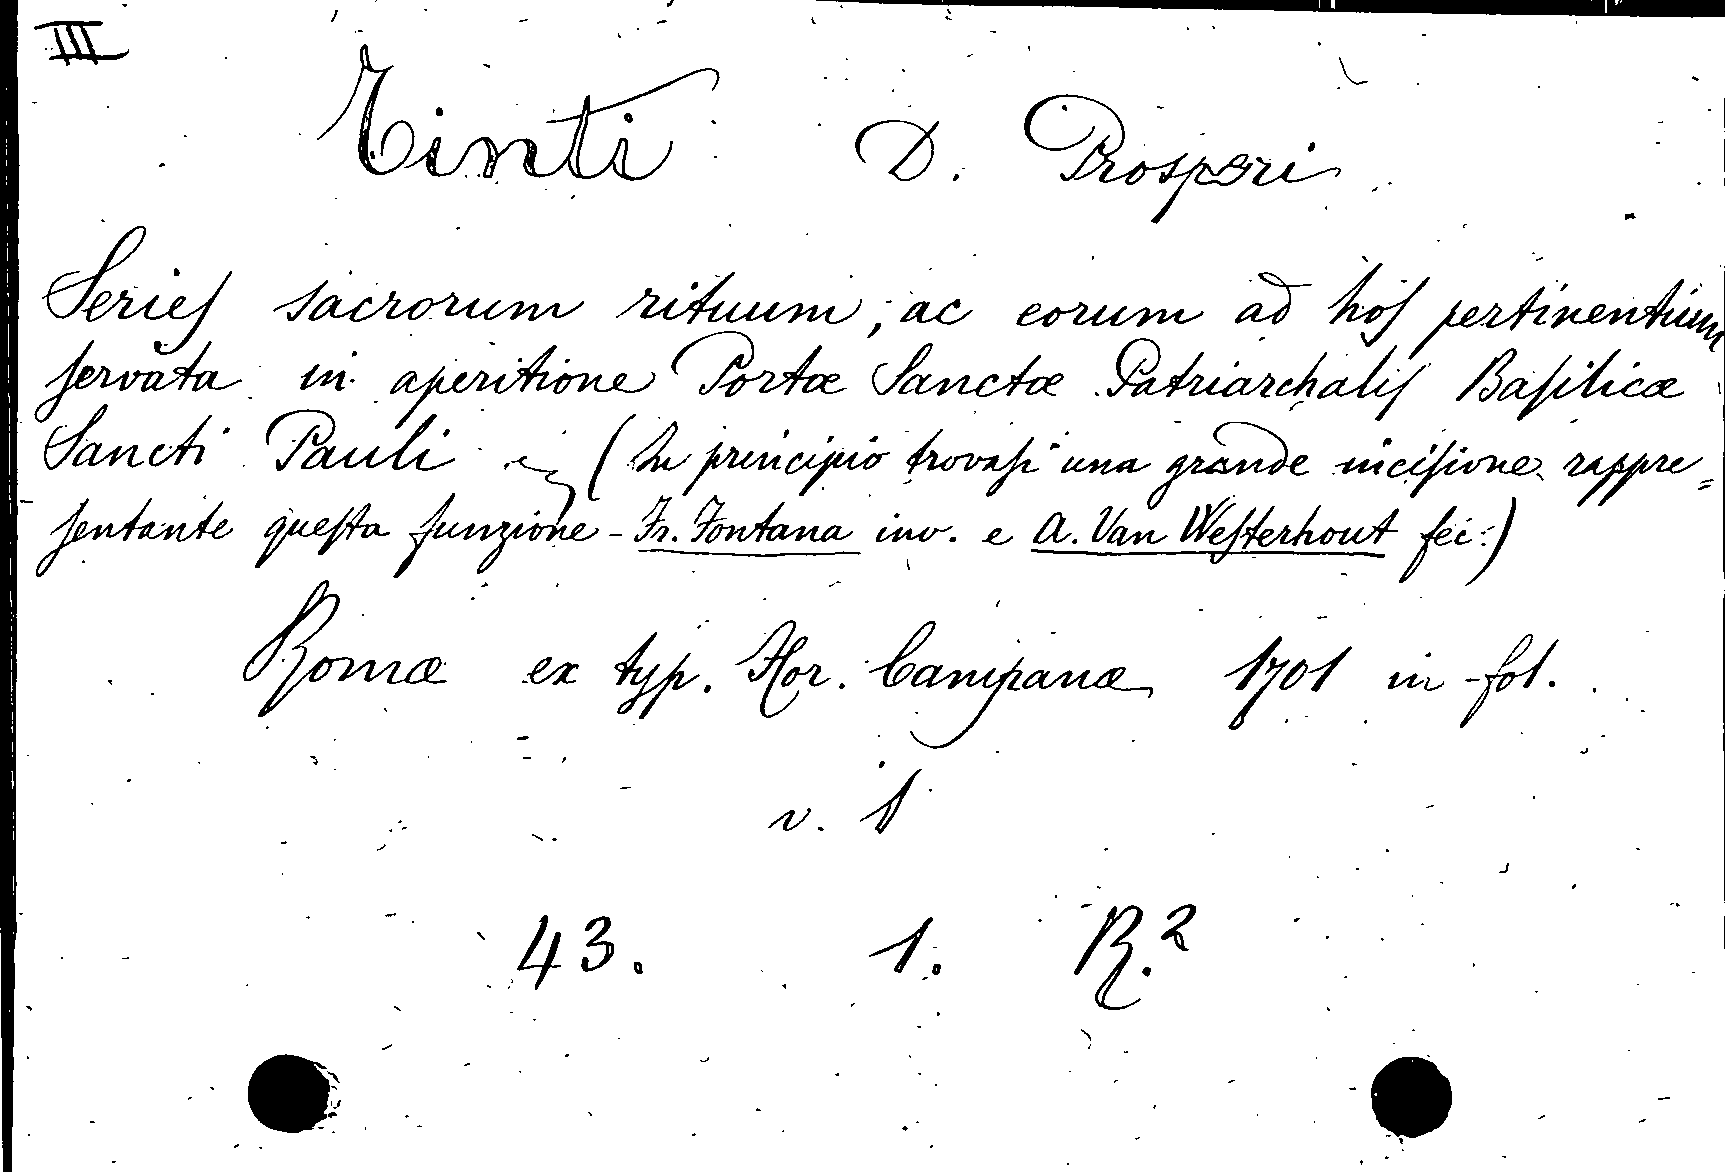 III
Tinti D. Prosperi
Series sacrorum rituum, ac eorum ad hos pertinentium
servata in aperitione Portæ Sanctæ Patriarchalis Basilicæ
Sancti Pauli (In principio trovasi una grande incisione rappre=
sentante questa funzione - Fr. Fontana inv. e A. Van Westerhout fec:)
Romæ ex typ. Hor. Campanæ 1701 in fol.
v. 1
43. 1. R.2